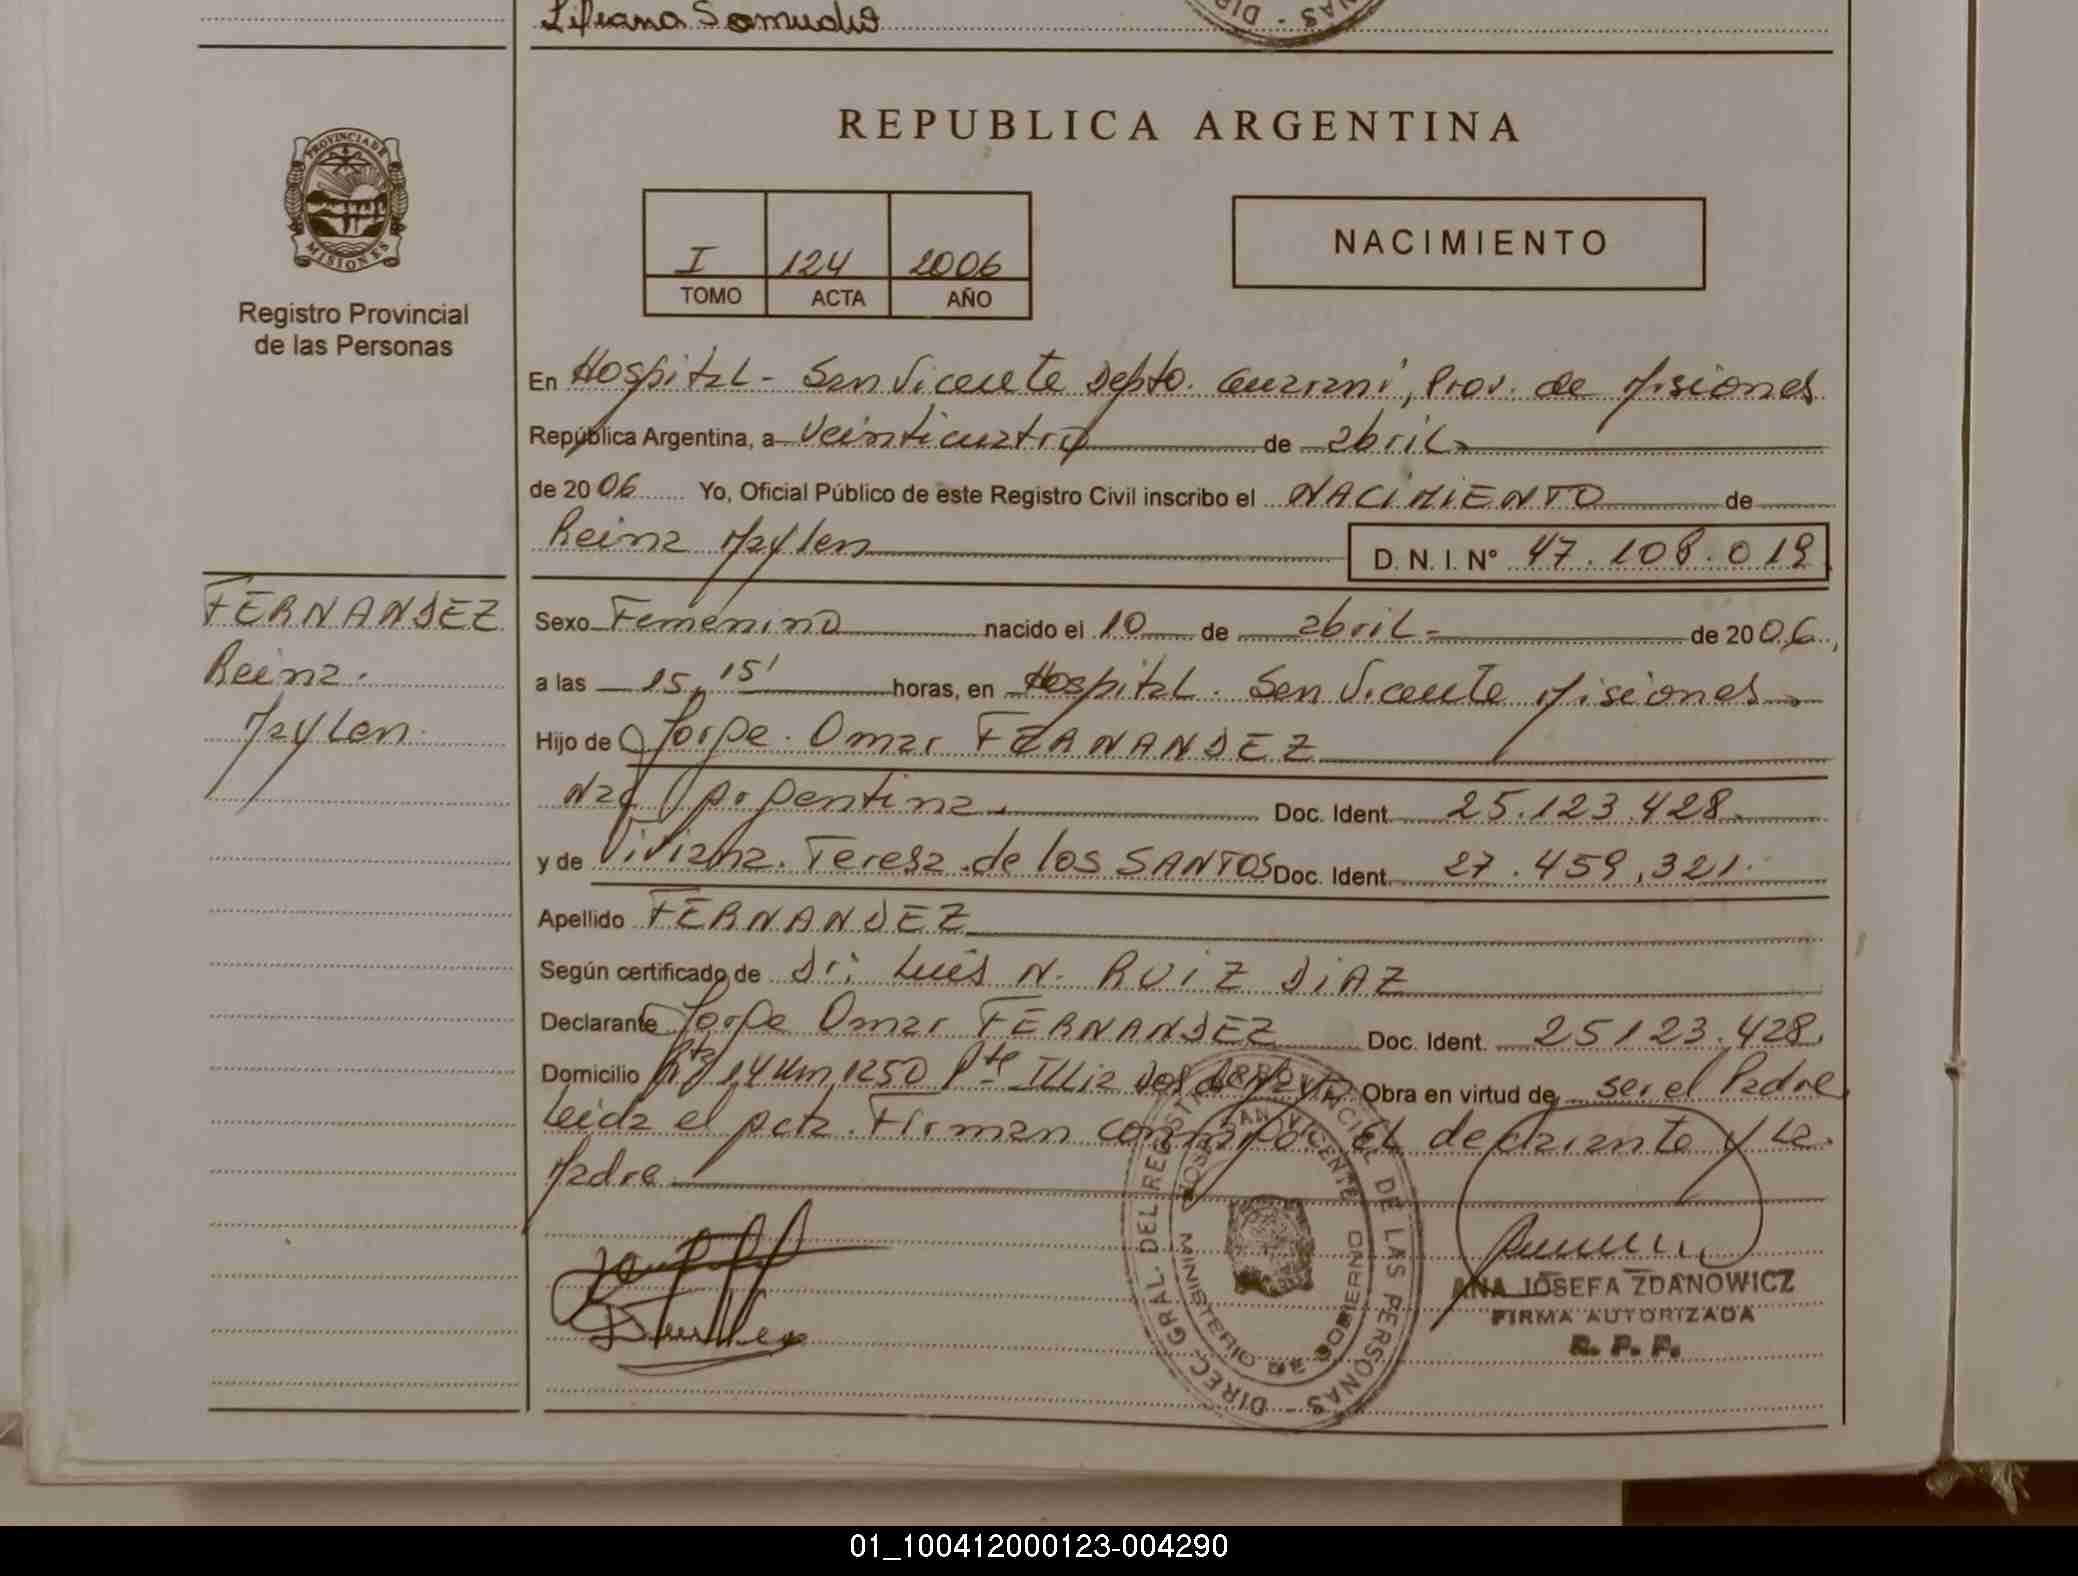 Liliana Samudio
REPUBLICA ARGENTINA
PROVINCIA DE MISIONES
Registro Provincial
de las Personas
I 124 2006
TOMO ACTA AÑO
NACIMIENTO
En Hospital - San Vicente Depto. Guarani, Prov. de Misiones
República Argentina, a veinticuatro de abril
de 2006 Yo, Oficial Público de este Registro Civil inscribo el NACIMIENTO de
Reina Maylen D. N. I. N° 47.108.019
FERNANDEZ
Reina.
Maylen.
Sexo Femenino nacido el 10 de abril de 2006,
a las 15,15' horas, en Hospital. San Vicente Misiones
Hijo de Jorge. Omar FERNANDEZ
Nac Argentina. Doc. Ident. 25.123.428.
y de Viviana. Teresa de los SANTOS Doc. Ident. 27.459.321.
Apellido FERNANDEZ
Según certificado de Dr: Luis N. RUIZ DIAZ
Declarante Jorge Omar FERNANDEZ Doc. Ident. 25123.428.
Domicilio Rta 14 Km 1250 Pte Illia Dos de Mayo Obra en virtud de ser el Padre
Leida el acta. Firman conmigo El declarante y La
Madre
DIREC. GRAL. DEL REGISTRO PROVINCIAL DE LAS PERSONAS
SAN VICENTE
MINISTERIO DE GOBIERNO
ANA JOSEFA ZDANOWICZ
FIRMA AUTORIZADA
R. P. P.
01_100412000123-004290